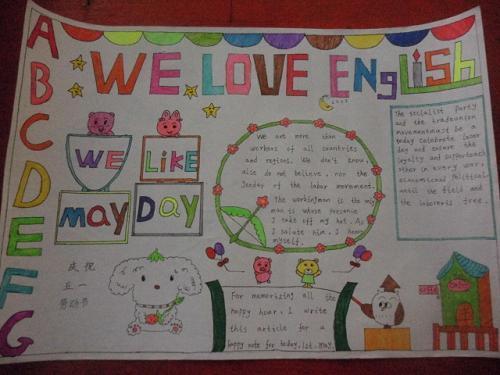 WE LOVE ENgLiSh
A
B
C
D
E
F
G
WE
LiKE
May
Day
We are more than
workers of all countries
and regions. We don't know,
also do not believe, nor the
gender of the labor movement.
The workingman is the
man is whose presence
I take off my hat. As
I salute him, I
myself.
The socialist party
and the tradeunion
movement must be a
today celebrate labor
day not ensure the
loyalty and
other in every war,
economical political
until the field and
the laborers free.
庆祝
五一
劳动节
For memorizing all the
happy hour, I write
this article for a
happy note for today, 1st. May.